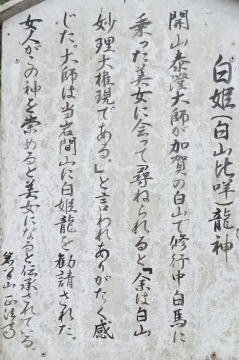 白姫(白山比咩)龍神
開山泰澄大師が加賀の白山で修行中白馬に
乗った美女に会って尋ねられると『余は白山
妙理大権現である。』と言われありがたく感
じた。大師は当岩間山に白姫龍を勧請された。
女人がこの神を崇めると美女になると伝承されてゐる。
岩間山正法寺